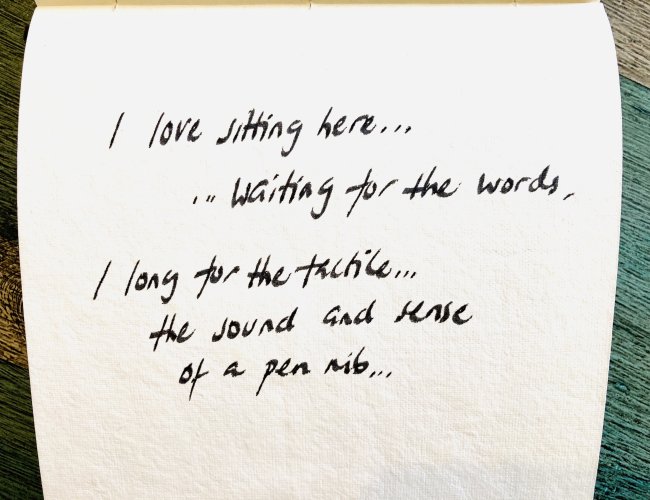 I love sitting here...
... waiting for the words,
I long for the tactile...
the sound and sense
of a pen nib...